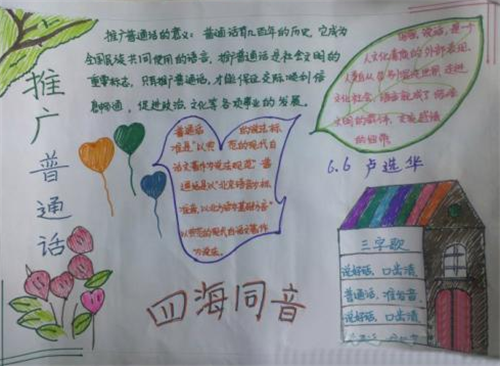 推广普通话
推广普通话的意义：普通话有几百年的历史，它成为
全国民族共同使用的语言，推广普通话是社会文明的
重要标志，只有推广普通话，才能保证交际顺利信
息畅通，促进政治、文化等各项事业的发展。
语言、谈话，是一个
人文化素质的外部表现
文化社会
文明的
的纽带
6.6 卢选华
普通话 的规范标
准是"以典范的现代白
话文著作为语法规范"普
通话是以"北京语音为标
准音，以北方话为基础方言"
以典范的现代白话文著作
为语法。
四海同音
三字歌
说好话，口出清
普通话，准备音，
说好话，口出清